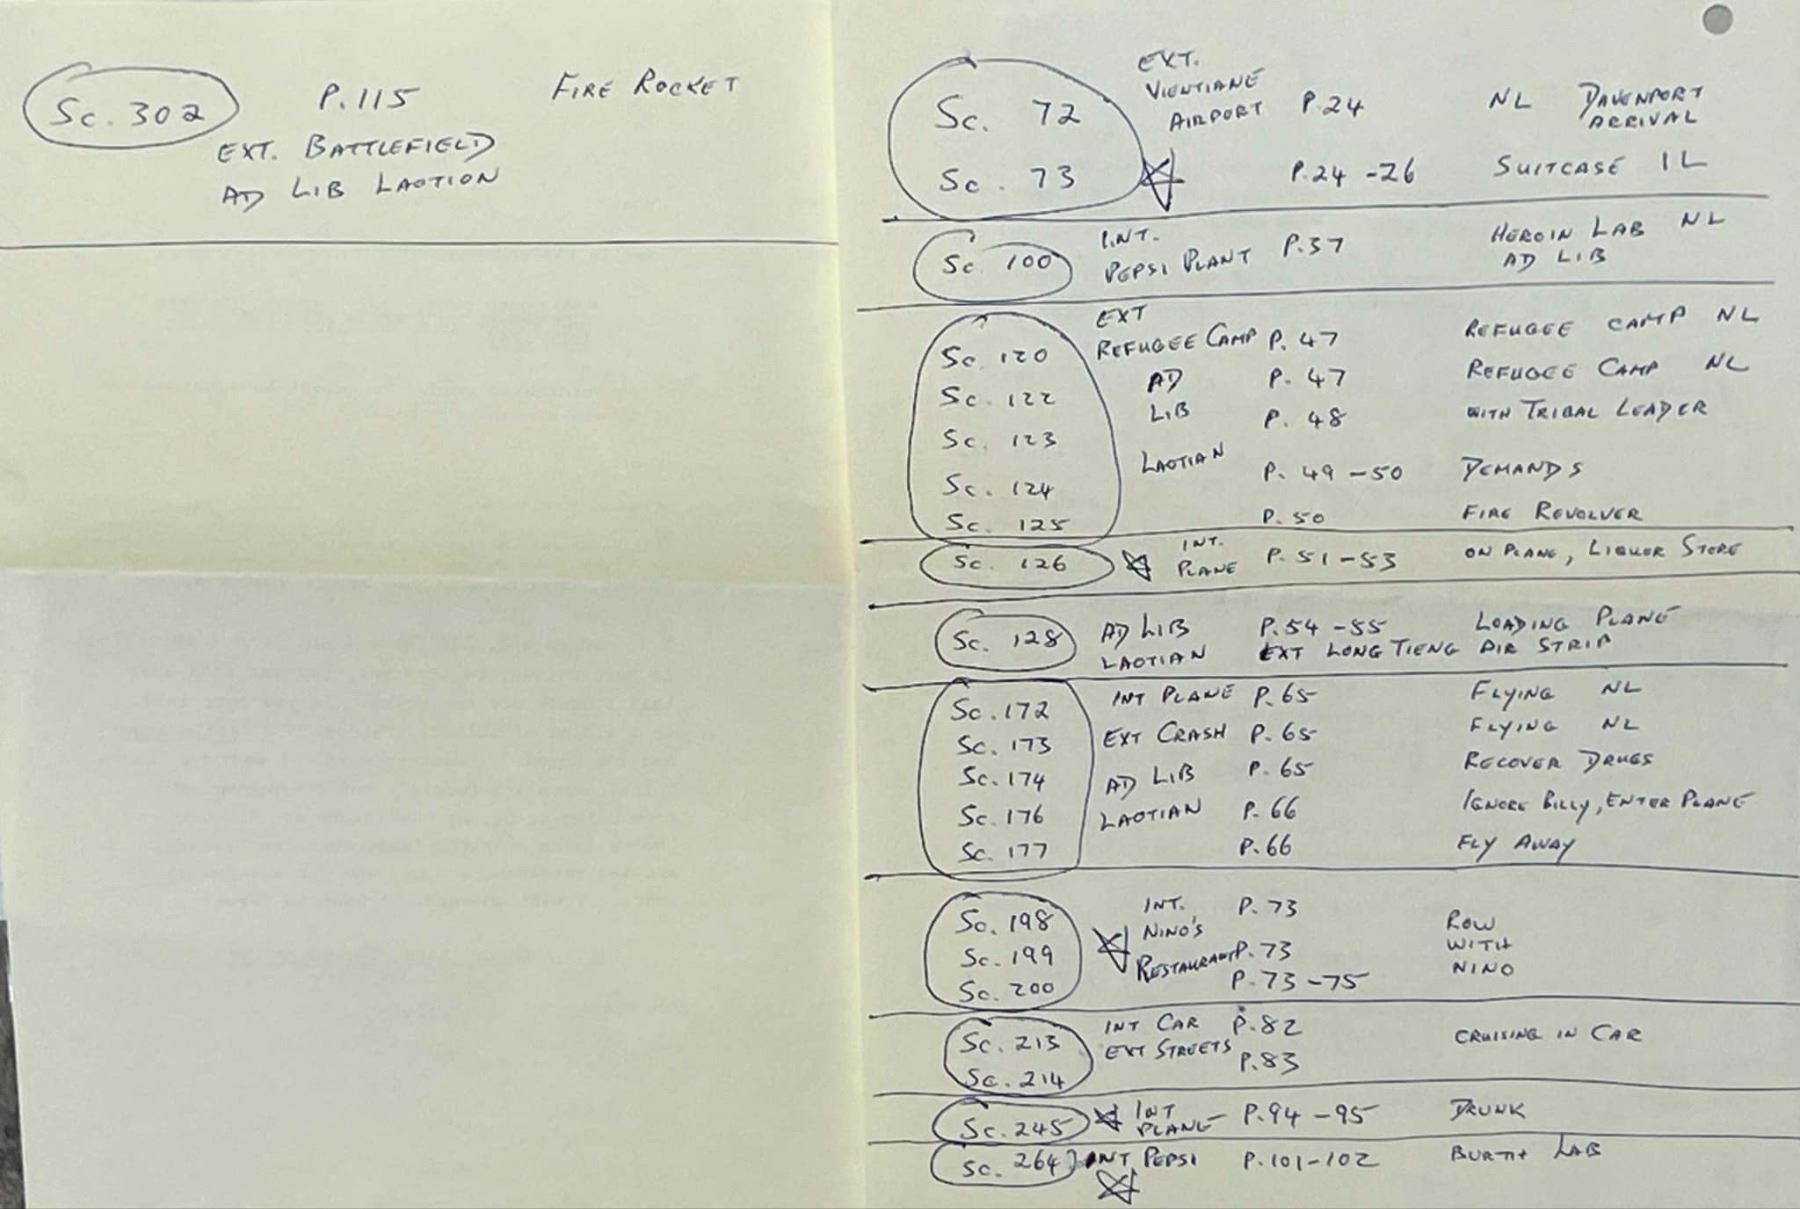 Sc. 302 P.115 FIRE ROCKET
EXT. BATTLEFIELD
AD LIB LAOTION
EXT.
VIENTIANE
Sc. 72 AIRPORT P.24 NL DAVENPORT
ARRIVAL
Sc. 73 P.24-26 SUITCASE 1L
INT.
Sc 100 PEPSI PLANT P.37 HEROIN LAB NL
AD LIB
EXT
Sc. 120 REFUGEE CAMP P. 47 REFUGEE CAMP NL
Sc. 122 AD P. 47 REFUGEE CAMP NL
Sc. 123 LIB P. 48 WITH TRIBAL LEADER
Sc. 124 LAOTIAN P. 49-50 DEMANDS
Sc. 125 P. 50 FIRE REVOLVER
INT.
Sc. 126 PLANE P. 51-53 ON PLANE, LIQUOR STORE
Sc. 128 AD LIB P.54-55 LOADING PLANE
LAOTIAN EXT LONG TIENG AIR STRIP
Sc. 172 INT PLANE P.65 FLYING NL
Sc. 173 EXT CRASH P.65 FLYING NL
Sc. 174 AD LIB P.65 RECOVER DRUGS
Sc. 176 LAOTIAN P.66 IGNORE BILLY, ENTER PLANE
Sc. 177 P.66 FLY AWAY
INT.
Sc. 198 NINO'S P.73 ROW
Sc. 199 RESTAURANT P.73 WITH
Sc. 200 P.73-75 NINO
Sc. 213 INT CAR P.82 CRUISING IN CAR
EXT STREETS
Sc. 214 P.83
INT
Sc. 245 PLANE P.94-95 DRUNK
Sc. 264 INT PEPSI P.101-102 LAB